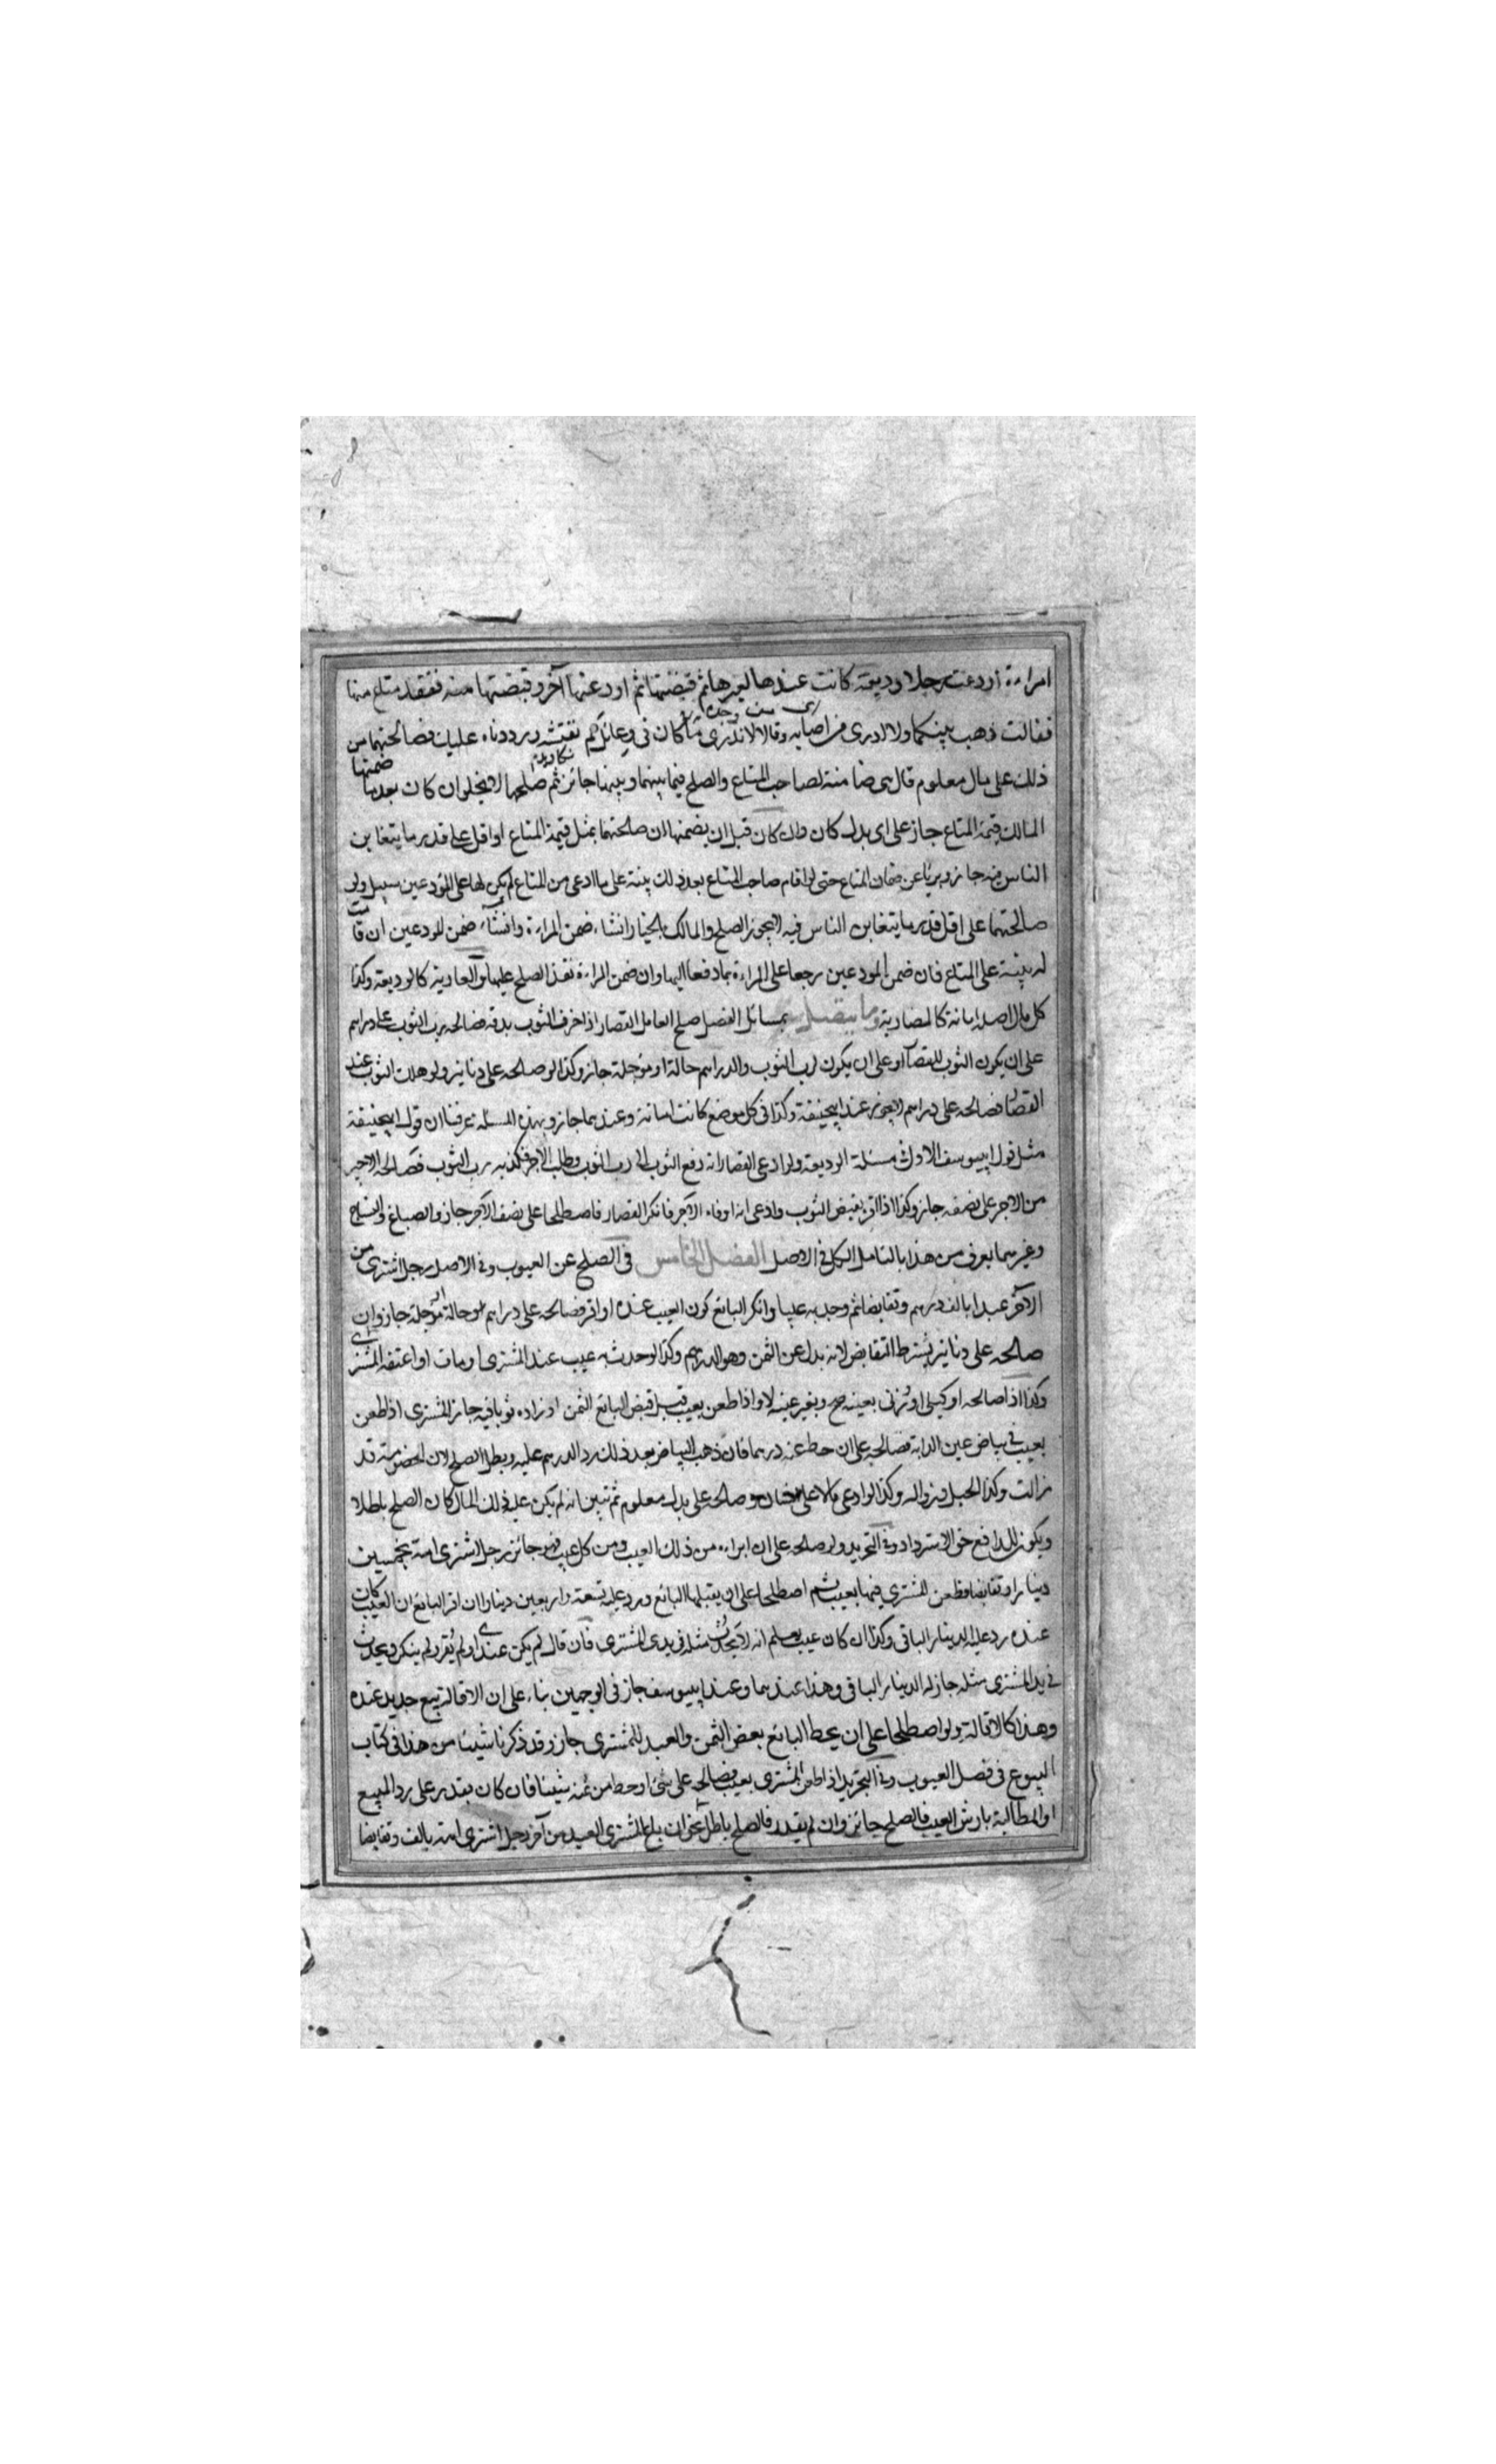 امراءة اودعت رجلا وديعة كانت عندها لغيرها ثم قبضتها ثم اودعتها آخر وقبضتها منه ففقد متاع منها
فقالت ذهب بينكما ولا ادرى من اصابه وقالا لا ندرى ما كان فى وعائك لم نفتشه ورددناه عليك فصالحتهما من
ذلك على مال معلوم قال هى ضامنة لصاحب المتاع والصلح فيما بينهما وبينها جائز ثم صلحها لا يخلوا ان كان بعد ما ضمنها
المالك قيمة المتاع جاز على اى بدل كان وان كان قبل ان يضمنها ان صالحتهما بمثل قيمة المتاع او اقل على قدر ما يتغابن
الناس فيه جاز وبريا عن ضمان المتاع حتى لو اقام صاحب المتاع بعد ذلك بينة على ما ادعى من المتاع لم يكن لها على المودعين سبيل ولو
صالحتهما على اقل قدر ما يتغابن الناس فيه لا يجوز الصلح والمالك بالخيار ان شاء ضمن المراءة وان شاء ضمن المودعين ان قامت
له بينة على المتاع فان ضمن المودعين رجعا على المراءة بما دفعا اليها وان ضمن المراءة نفذ الصلح عليهما والعارية كالوديعة وكذا
كل مال اصله امانة كالمضاربة وما يتصل بمسائل الفصل صلح العامل القصار اذا خرق الثوب بدقه فصالحه رب الثوب على دراهم
على ان يكون الثوب للقصار او على ان يكون لرب الثوب والدراهم حالة او مؤجلة جاز وكذا لو صالحه على دنانير ولو هلك الثوب عند
القصار فصالحه على دراهم لا يجوز عند ابيحنيفة وكذا فى كل موضع كانت امانة وعندهما جاز وبهذه المسئلة عرفنا ان قول ابيحنيفة
مثل قول ابييوسف الاول فى مسئلة الوديعة ولو ادعى القصار انه دفع الثوب الى رب الثوب وطلب الاجر فكذبه رب الثوب فصالحه الاجير
من الاجر على نصفه جاز وكذا اذا اقر بقبض الثوب وادعى انه اوفاه الاجر فانكر القصار فاصطلحا على نصف الاجر جاز والصباغ والنساج
وغيرهما يعرف من هذا بالتامل الكل فى الاصل الفصل الخامس فى الصلح عن العيوب وفى الاصل رجل اشترى من
الاخر عبدا بالف درهم وتقابضا ثم وجد به عيبا وانكر البائع كون العيب عنده او اقر فصالحه على دراهم حالة او مؤجلة جاز وان
صالحه على دنانير يشترط التقابض لانه بدل عن الثمن وهو الدراهم وكذا لو حدث به عيب عند المشترى او مات او اعتقه المشترى
وكذا اذا صالحه او كيلى او وزنى بعينه صح وبغير عينه لا واذا طعن بعيب قبل قبض البائع الثمن او زاده ثوبا فيه جاز المشترى اذا طعن
بعيب فى بياض عين الدابة فصالحه على ان حط عنه درهما فان ذهب البياض بعد ذلك رد الدرهم عليه وبطل الصلح لان الخصومة قد
زالت وكذا الحبل وزواله وكذا لو ادعى مالا على وصالحه على بدل معلوم ثم تبين انه لم يكن عليه ذلك المال كان الصلح باطلا
ويكون للدافع حق الاسترداد وفى التجريد ولو صالحه على ان ابراءه من ذلك العيب ومن كل عيب فهو جائز رجل اشترى امة بخمسين
دينارا وتقابضا وطعن المشترى فيها بعيب ثم اصطلحا على ان يقبلها البائع ويرد عليه تسعة واربعين دينارا ان اقر البائع ان العيب كان
عنده رد عليه الدينار الباقى وكذا ان كان عيب يعلم انه لا يحدث مثله فى يدى المشترى فان قال لم يكن عندى او لم يقر ولم ينكر ويحدث
فى يد المشترى مثله جاز له الدينار الباقى وهذا عندهما وعند ابييوسف جاز فى الوجهين بناء على ان الاقالة بيع جديد عنده
وهذا كالاقالة ولو اصطلحا على ان يحط البائع بعض الثمن والعبد للمشترى جاز وقد ذكرنا شيئا من هذا فى كتاب
البيوع فى فصل العيوب وفى التجريد اذا طعن المشترى بعيب فصالحه على شئ او حط من ثمنه شيئا فان كان يقدر على رد المبيع
او المطالبة بارش العيب فالصلح جائز وان لم يقدر فالصلح باطل نحو ان باع المشترى العبد من آخر رجل اشترى امة بالف وتقابضا